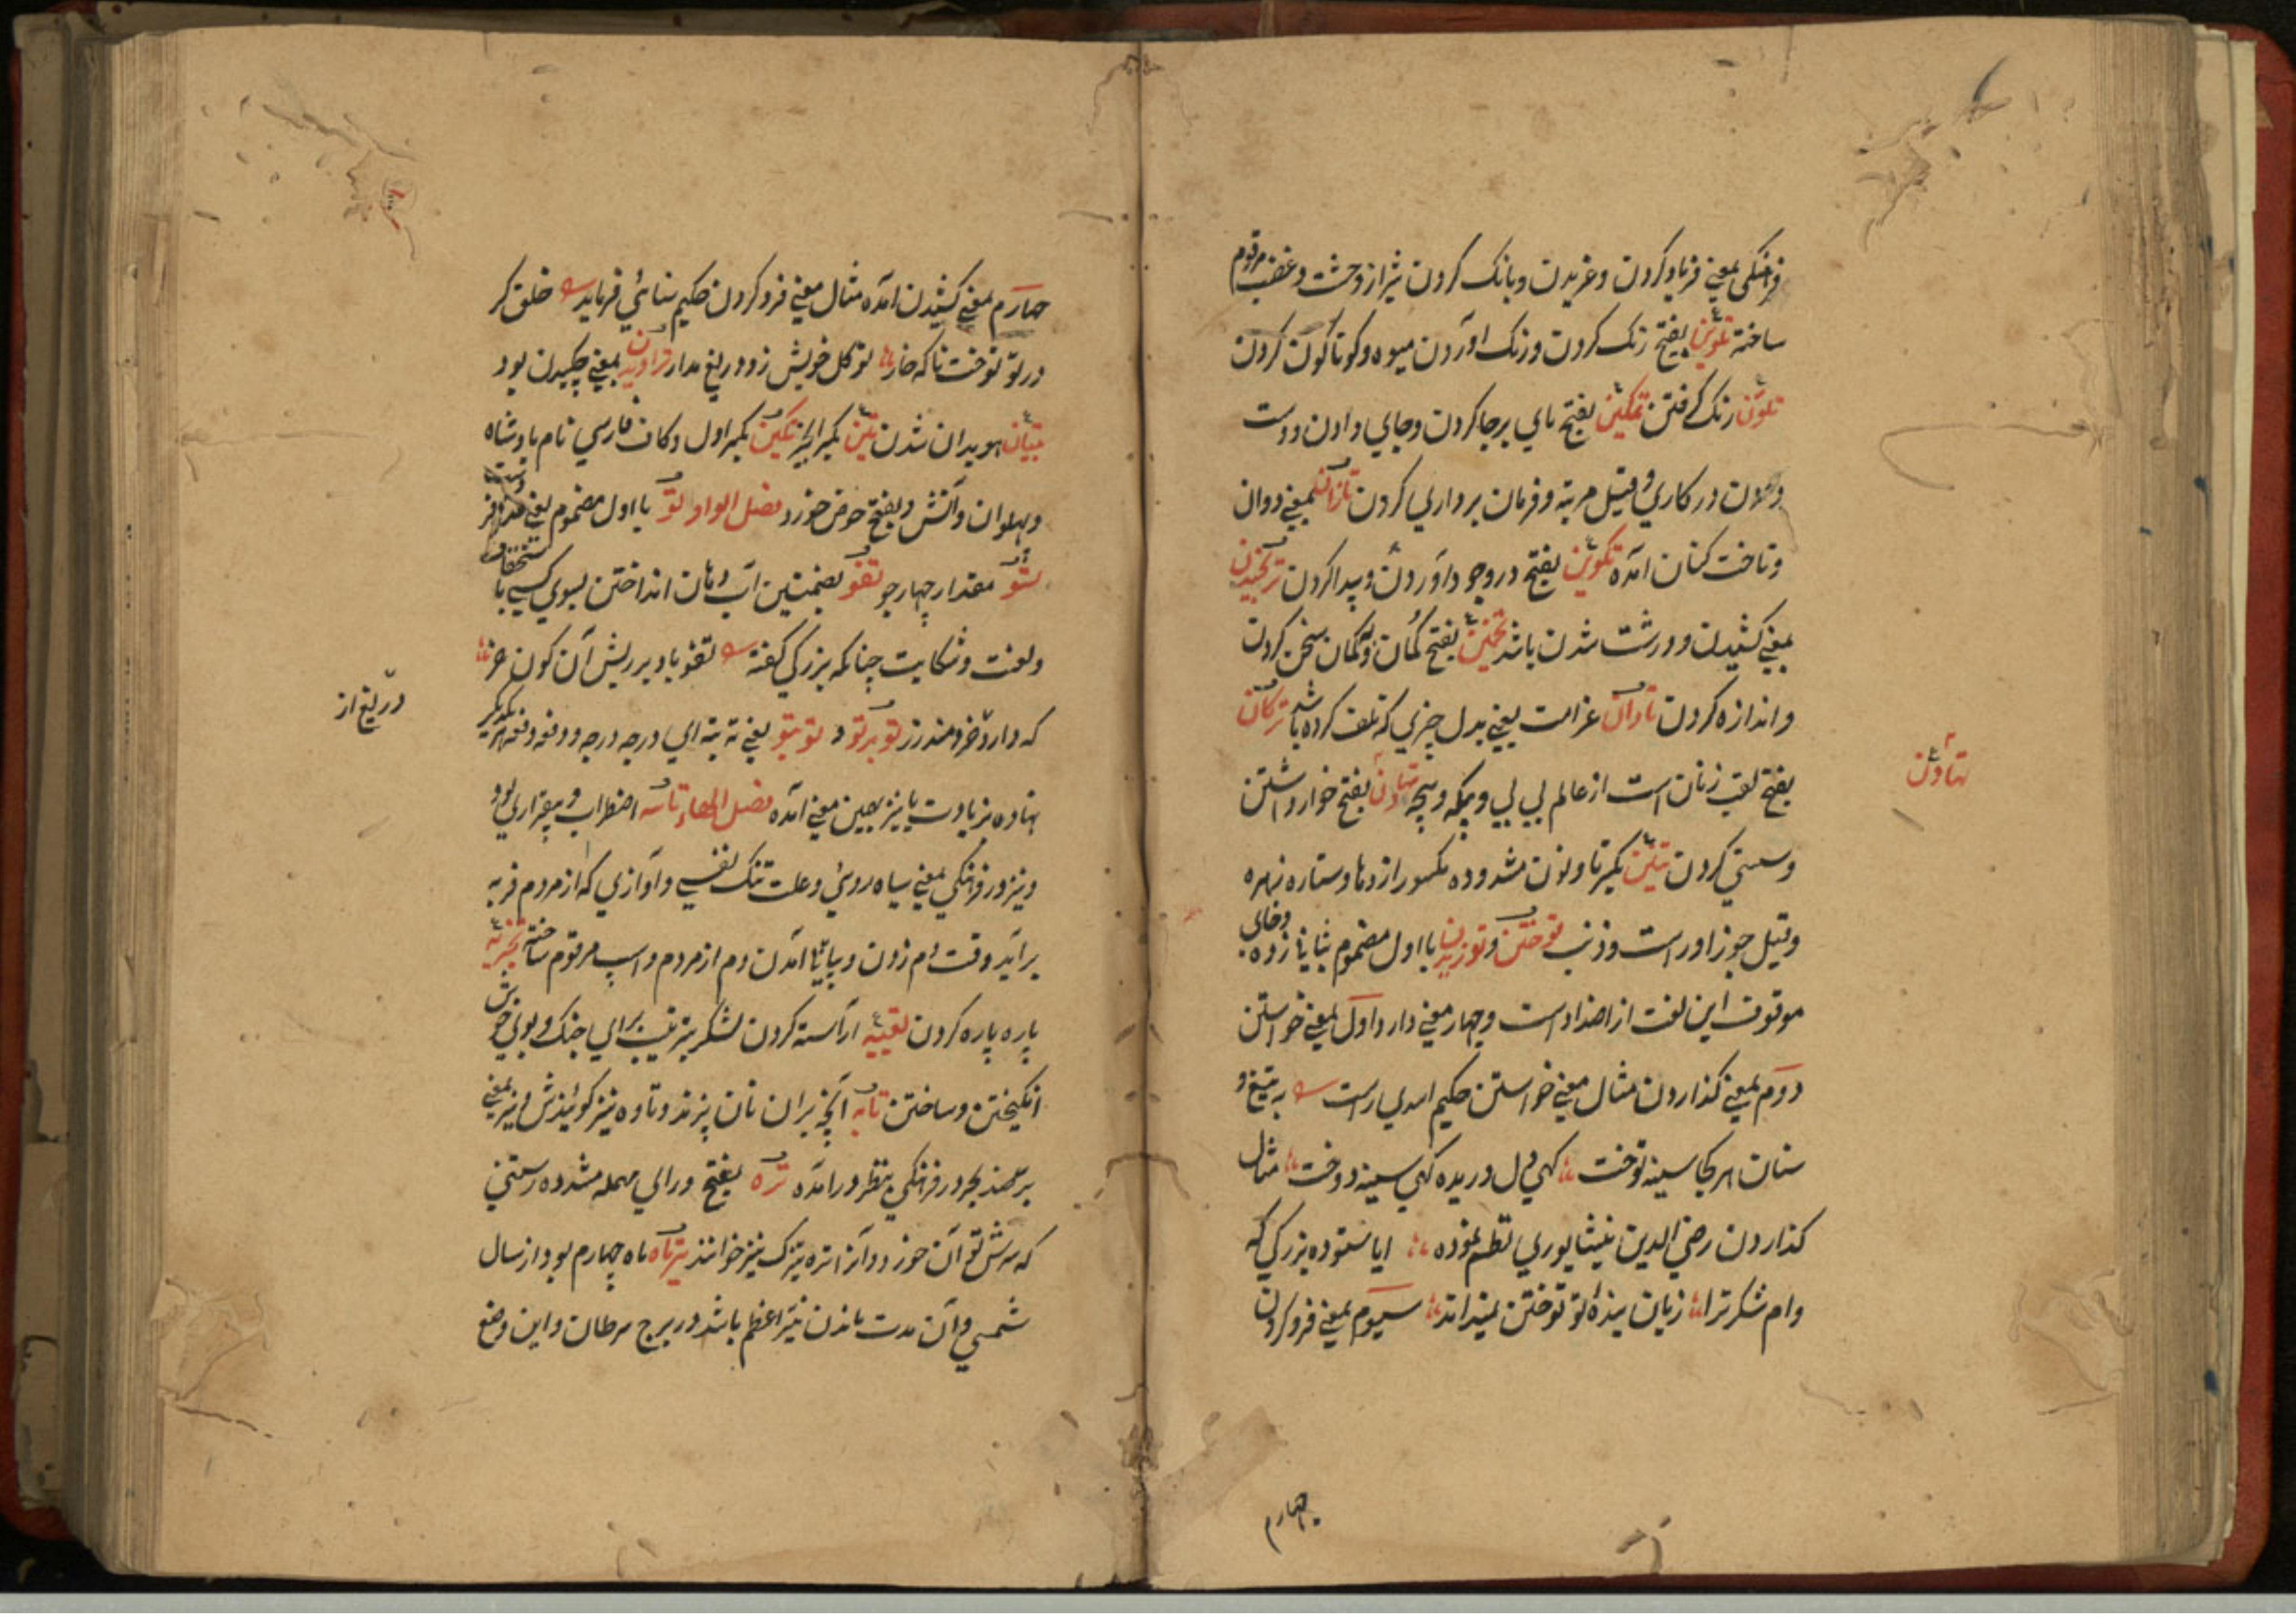 فرهنکی بمعنی فریاد کردن و غریدن و بانک کردن شیر از وحشت و غضب مرقوم
ساخته تلوین بفتح رنک کردن و رنک اوردن میوه و کوناکون کردن
تلون رنک کرفتن تمکین بفتح پای برجا کردن و جای دادن و دست
دادن در کاری و قیل مرتبه و فرمان برداری کردن تازان بمعنی دوان
و تاخت کنان امده تکوین بفتح در وجود اوردن و پیدا کردن ترنجیدن
بمعنی کشیدن و درشت شدن باشد تخمین بفتح کمان و بکمان سخن کردن
و اندازه کردن تاوان غرامت یعنی بدل چیزی که تلف کرده باشد ترکان
بفتح لقب زنان است از عالم بی بی و بیکه و بیچه تهاون بفتح خوار داشتن
تهاون
و سستی کردن تنین بکسر تا و نون مشدوده مکسور اژدها و ستاره زهره
و قیل جوزاور است و ذنب توختن و توزیدن با اول مضموم بثانی زده و خای
موقوف این لغت از اضداد است و چهار معنی دارد اول بمعنی خواستن
دوم بمعنی کذاردن مثال معنی خواستن حکیم اسدی راست به تیغ و
سنان هر کجا سینه توخت کهی دل دریده کهی سینه دوخت مثال
کذاردن رضی الدین نیشاپوری نظم نموده ایا ستوده بزرکی که
وام شکر ترا زبان بنده تو توختن نمیداند سیوم بمعنی فرو کردن
چهارم
چهارم بمعنی کشیدن امده مثال معنی فرو کردن حکیم سنائی فرماید خلق کر
در تو توخت ناکه خار تو کل خویش زو دریغ مدار تراویدن بمعنی چکیدن بود
تبیان هویدا شدن تین بکسر انجیر تکین بکسر اول و کاف فارسی نام پادشاه
و پهلوان و آتش و بفتح حوض خورد فصل الواو تو با اول مضموم یعنی
تسو مقدار چهار جو تفو بضمتین آب دهان انداختن بسوی کسی با استخفاف
و لعنت و شکایت چنانکه بزرکی کفته تفو باد بر ریش آن کون خر
که دارد خردمند زر تو بر تو و تو بتو یعنی ته بته ای درجه درجه و دفعه دفعه بر یکدیکر
دریغ از
نهاده بزیادت یا نیز بهمین معنی امده فصل الهاء تاسه اضطراب و بیقراری بود
و نیز در فرهنکی بمعنی سیاه روئی و علت تنک نفسی و آوازی که از مردم فربه
برآید وقت دم زدن و بیاپی آمدن دم از مردم و اسپ مرقوم ساخته تجزیه
پاره پاره کردن تعبیه آراسته کردن لشکر بترتیب برای جنک و بوی خوش
انکیختن و ساختن تابه آنچه بران نان پزند و تاوه نیز کویندش و نیز بمعنی
در فرهنکی بنظر درآمده تره بفتح و رای مهمله مشدوده رستنی
که ترش آن خورد و آنرا تره تیزک نیز خوانند تیرماه ماه چهارم بود از سال
شمسی و آن مدت ماندن نیر اعظم باشد در برج سرطان و این وضع